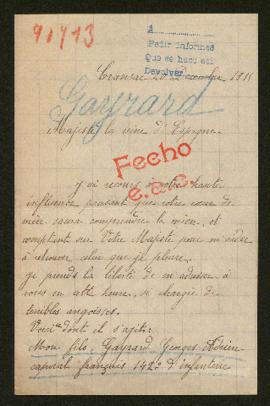 91413
A
Pedir informes
Que se hace así
Devolver
Cransac 20 Décembre 1915
Gayrard
Majesté la reine d'Espagne
Fecho
e.a.C.
J'ai recours à votre haute
influence pensant que votre cœur de
mère saura comprendre le mien, et
comptant sur Votre Majesté pour m'aider
à retrouver celui que je pleure.
je prends la liberté de m'adresser à
vous en cette heure, si chargée de
terribles angoisses.
Voici dont il s'agit:
Mon fils, Gayrard Georges Adrien
caporal français 142e d'infanterie